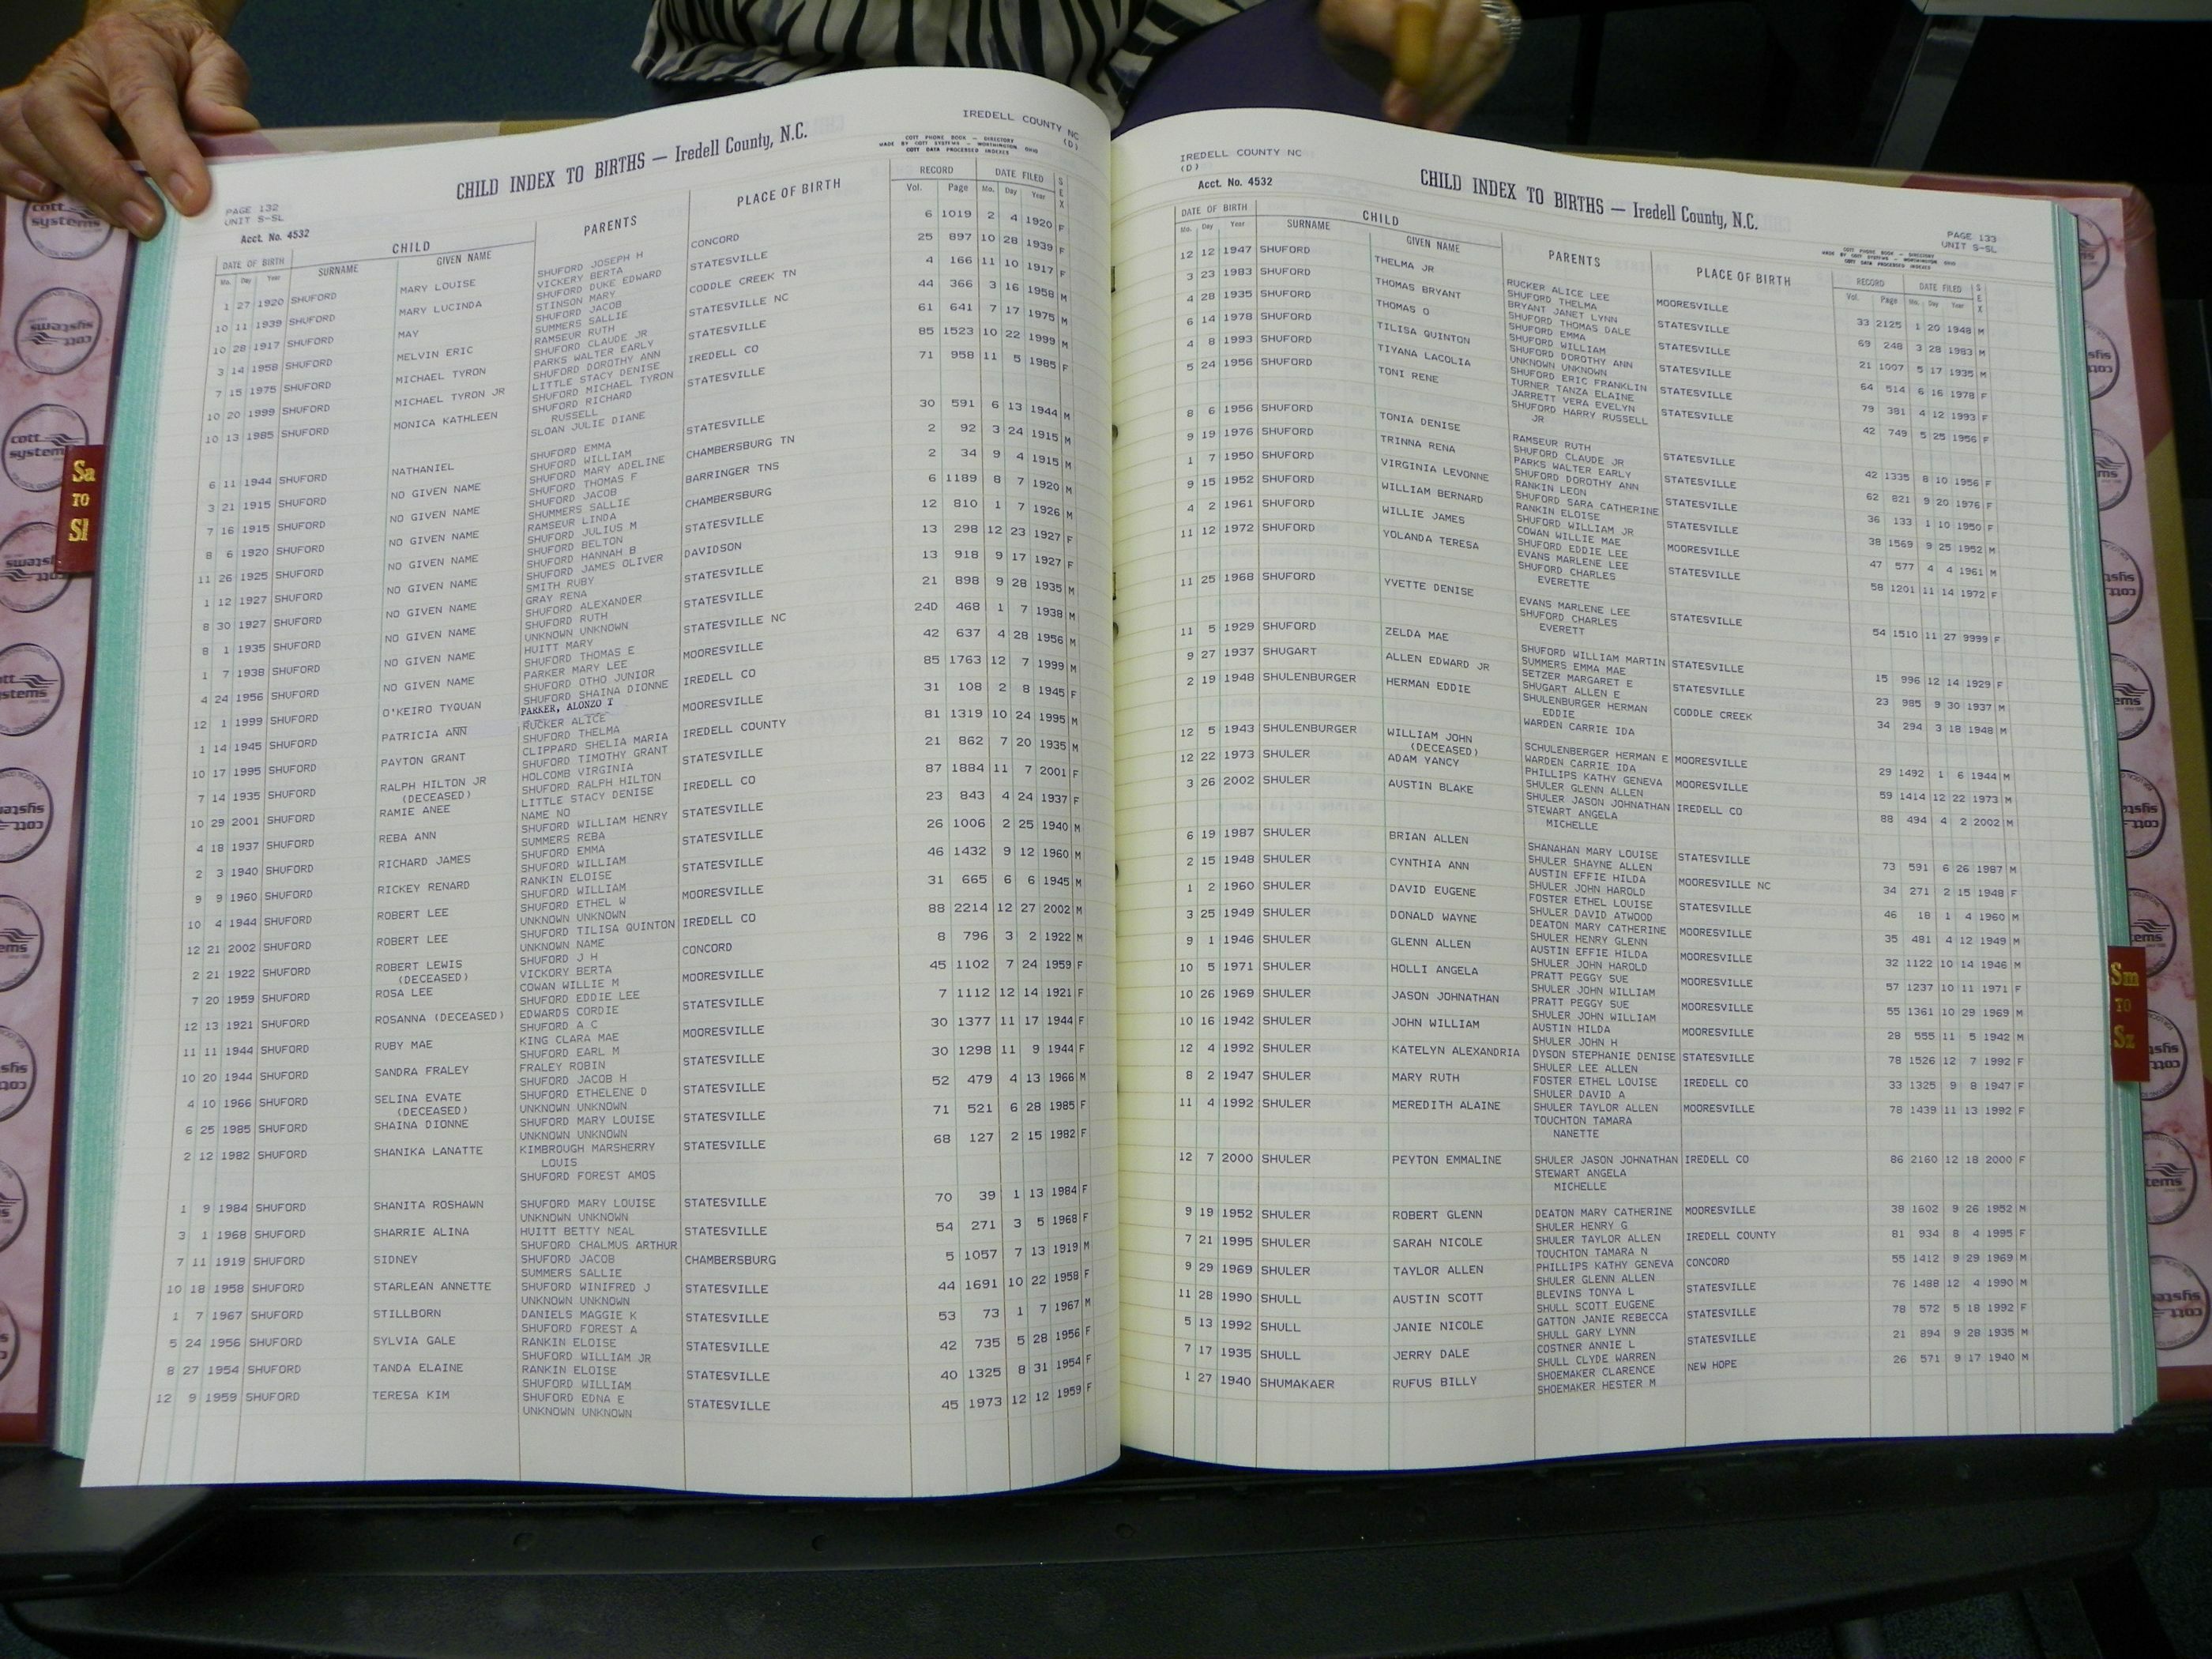 IREDELL COUNTY NC
(D)
CHILD INDEX TO BIRTHS — Iredell County, N.C.
COTT PHONE BOOK — DIRECTORY
MADE BY COTT SYSTEMS — WORTHINGTON OHIO
COTT DATA PROCESSED INDEXES
PAGE 132
UNIT S-SL
Acct. No. 4532
DATE OF BIRTH CHILD PARENTS PLACE OF BIRTH RECORD DATE FILED SEX
Mo. Day Year SURNAME GIVEN NAME Vol. Page Mo. Day Year
1 27 1920 SHUFORD MARY LOUISE SHUFORD JOSEPH H CONCORD 6 1019 2 4 1920 F
VICKERY BERTA
10 11 1939 SHUFORD MARY LUCINDA SHUFORD DUKE EDWARD STATESVILLE 25 897 10 28 1939 F
STINSON MARY
10 28 1917 SHUFORD MAY SHUFORD JACOB CODDLE CREEK TN 4 166 11 10 1917 F
SUMMERS SALLIE
3 14 1958 SHUFORD MELVIN ERIC RAMSEUR RUTH STATESVILLE NC 44 366 3 16 1958 M
SHUFORD CLAUDE JR
7 15 1975 SHUFORD MICHAEL TYRON PARKS WALTER EARLY STATESVILLE 61 641 7 17 1975 M
SHUFORD DOROTHY ANN
10 20 1999 SHUFORD MICHAEL TYRON JR LITTLE STACY DENISE IREDELL CO 85 1523 10 22 1999 M
SHUFORD MICHAEL TYRON
10 13 1985 SHUFORD MONICA KATHLEEN SHUFORD RICHARD STATESVILLE 71 958 11 5 1985 F
RUSSELL
SLOAN JULIE DIANE
6 11 1944 SHUFORD NATHANIEL SHUFORD EMMA STATESVILLE 30 591 6 13 1944 M
SHUFORD WILLIAM
3 21 1915 SHUFORD NO GIVEN NAME SHUFORD MARY ADELINE CHAMBERSBURG TN 2 92 3 24 1915 M
SHUFORD THOMAS F
7 16 1915 SHUFORD NO GIVEN NAME SHUFORD JACOB BARRINGER TNS 2 34 9 4 1915 M
SHUMMERS SALLIE
8 6 1920 SHUFORD NO GIVEN NAME RAMSEUR LINDA CHAMBERSBURG 6 1189 8 7 1920 M
SHUFORD JULIUS M
11 26 1925 SHUFORD NO GIVEN NAME SHUFORD BELTON STATESVILLE 12 810 1 7 1926 M
SHUFORD HANNAH B
1 12 1927 SHUFORD NO GIVEN NAME SHUFORD JAMES OLIVER DAVIDSON 13 298 12 23 1927 F
SMITH RUBY
8 30 1927 SHUFORD NO GIVEN NAME GRAY RENA STATESVILLE 13 918 9 17 1927 F
SHUFORD ALEXANDER
8 1 1935 SHUFORD NO GIVEN NAME SHUFORD RUTH STATESVILLE 21 898 9 28 1935 M
UNKNOWN UNKNOWN
1 7 1938 SHUFORD NO GIVEN NAME HUITT MARY STATESVILLE NC 24D 468 1 7 1938 M
SHUFORD THOMAS E
4 24 1956 SHUFORD NO GIVEN NAME PARKER MARY LEE MOORESVILLE 42 637 4 28 1956 M
SHUFORD OTHO JUNIOR
12 1 1999 SHUFORD O'KEIRO TYQUAN SHUFORD SHAINA DIONNE IREDELL CO 85 1763 12 7 1999 M
PARKER, ALONZO T
1 14 1945 SHUFORD PATRICIA ANN RUCKER ALICE MOORESVILLE 31 108 2 8 1945 F
SHUFORD THELMA
10 17 1995 SHUFORD PAYTON GRANT CLIPPARD SHELIA MARIA IREDELL COUNTY 81 1319 10 24 1995 M
SHUFORD TIMOTHY GRANT
7 14 1935 SHUFORD RALPH HILTON JR HOLCOMB VIRGINIA STATESVILLE 21 862 7 20 1935 M
(DECEASED) SHUFORD RALPH HILTON
10 29 2001 SHUFORD RAMIE ANEE LITTLE STACY DENISE IREDELL CO 87 1884 11 7 2001 F
NAME NO
4 18 1937 SHUFORD REBA ANN SHUFORD WILLIAM HENRY STATESVILLE 23 843 4 24 1937 F
SUMMERS REBA
2 3 1940 SHUFORD RICHARD JAMES SHUFORD EMMA STATESVILLE 26 1006 2 25 1940 M
SHUFORD WILLIAM
9 9 1960 SHUFORD RICKEY RENARD RANKIN ELOISE STATESVILLE 46 1432 9 12 1960 M
SHUFORD WILLIAM
10 4 1944 SHUFORD ROBERT LEE SHUFORD ETHEL W MOORESVILLE 31 665 6 6 1945 M
UNKNOWN UNKNOWN
12 21 2002 SHUFORD ROBERT LEE SHUFORD TILISA QUINTON IREDELL CO 88 2214 12 27 2002 M
UNKNOWN NAME
2 21 1922 SHUFORD ROBERT LEWIS SHUFORD J H CONCORD 8 796 3 2 1922 M
(DECEASED) VICKORY BERTA
7 20 1959 SHUFORD ROSA LEE COWAN WILLIE M MOORESVILLE 45 1102 7 24 1959 F
SHUFORD EDDIE LEE
12 13 1921 SHUFORD ROSANNA (DECEASED) EDWARDS CORDIE STATESVILLE 7 1112 12 14 1921 F
SHUFORD A C
11 11 1944 SHUFORD RUBY MAE KING CLARA MAE MOORESVILLE 30 1377 11 17 1944 F
SHUFORD EARL M
10 20 1944 SHUFORD SANDRA FRALEY FRALEY ROBIN STATESVILLE 30 1298 11 9 1944 F
SHUFORD JACOB H
4 10 1966 SHUFORD SELINA EVATE SHUFORD ETHELENE D STATESVILLE 52 479 4 13 1966 M
(DECEASED) UNKNOWN UNKNOWN
6 25 1985 SHUFORD SHAINA DIONNE SHUFORD MARY LOUISE STATESVILLE 71 521 6 28 1985 F
UNKNOWN UNKNOWN
2 12 1982 SHUFORD SHANIKA LANATTE KIMBROUGH MARSHERRY STATESVILLE 68 127 2 15 1982 F
LOUIS
SHUFORD FOREST AMOS
1 9 1984 SHUFORD SHANITA ROSHAWN SHUFORD MARY LOUISE STATESVILLE 70 39 1 13 1984 F
UNKNOWN UNKNOWN
3 1 1968 SHUFORD SHARRIE ALINA HUITT BETTY NEAL STATESVILLE 54 271 3 5 1968 F
SHUFORD CHALMUS ARTHUR
7 11 1919 SHUFORD SIDNEY SHUFORD JACOB CHAMBERSBURG 5 1057 7 13 1919 M
SUMMERS SALLIE
10 18 1958 SHUFORD STARLEAN ANNETTE SHUFORD WINIFRED J STATESVILLE 44 1691 10 22 1958 F
UNKNOWN UNKNOWN
1 7 1967 SHUFORD STILLBORN DANIELS MAGGIE K STATESVILLE 53 73 1 7 1967 M
SHUFORD FOREST A
5 24 1956 SHUFORD SYLVIA GALE RANKIN ELOISE STATESVILLE 42 735 5 28 1956 F
SHUFORD WILLIAM JR
8 27 1954 SHUFORD TANDA ELAINE RANKIN ELOISE STATESVILLE 40 1325 8 31 1954 F
SHUFORD WILLIAM
12 9 1959 SHUFORD TERESA KIM SHUFORD EDNA E STATESVILLE 45 1973 12 12 1959 F
UNKNOWN UNKNOWN
IREDELL COUNTY NC
(D)
Acct. No. 4532
CHILD INDEX TO BIRTHS — Iredell County, N.C.
PAGE 133
UNIT S-SL
COTT PHONE BOOK — DIRECTORY
MADE BY COTT SYSTEMS — WORTHINGTON OHIO
COTT DATA PROCESSED INDEXES
DATE OF BIRTH CHILD PARENTS PLACE OF BIRTH RECORD DATE FILED SEX
Mo. Day Year SURNAME GIVEN NAME Vol. Page Mo. Day Year
12 12 1947 SHUFORD THELMA JR RUCKER ALICE LEE MOORESVILLE 33 2125 1 20 1948 M
SHUFORD THELMA
3 23 1983 SHUFORD THOMAS BRYANT BRYANT JANET LYNN STATESVILLE 69 248 3 28 1983 M
SHUFORD THOMAS DALE
4 28 1935 SHUFORD THOMAS O SHUFORD EMMA STATESVILLE 21 1007 5 17 1935 M
SHUFORD WILLIAM
6 14 1978 SHUFORD TILISA QUINTON SHUFORD DOROTHY ANN STATESVILLE 64 514 6 16 1978 F
UNKNOWN UNKNOWN
4 8 1993 SHUFORD TIYANA LACOLIA SHUFORD ERIC FRANKLIN STATESVILLE 79 381 4 12 1993 F
TURNER TANZA ELAINE
5 24 1956 SHUFORD TONI RENE JARRETT VERA EVELYN STATESVILLE 42 749 5 25 1956 F
SHUFORD HARRY RUSSELL
JR
8 6 1956 SHUFORD TONIA DENISE RAMSEUR RUTH STATESVILLE 42 1335 8 10 1956 F
SHUFORD CLAUDE JR
9 19 1976 SHUFORD TRINNA RENA PARKS WALTER EARLY STATESVILLE 62 821 9 20 1976 F
SHUFORD DOROTHY ANN
1 7 1950 SHUFORD VIRGINIA LEVONNE RANKIN LEON STATESVILLE 36 133 1 10 1950 F
SHUFORD SARA CATHERINE
9 15 1952 SHUFORD WILLIAM BERNARD RANKIN ELOISE STATESVILLE 38 1569 9 25 1952 M
SHUFORD WILLIAM JR
4 2 1961 SHUFORD WILLIE JAMES COWAN WILLIE MAE MOORESVILLE 47 577 4 4 1961 M
SHUFORD EDDIE LEE
11 12 1972 SHUFORD YOLANDA TERESA EVANS MARLENE LEE STATESVILLE 58 1201 11 14 1972 F
SHUFORD CHARLES
EVERETTE
11 25 1968 SHUFORD YVETTE DENISE EVANS MARLENE LEE STATESVILLE 54 1510 11 27 9999 F
SHUFORD CHARLES
EVERETT
11 5 1929 SHUFORD ZELDA MAE SHUFORD WILLIAM MARTIN STATESVILLE 15 996 12 14 1929 F
SUMMERS EMMA MAE
9 27 1937 SHUGART ALLEN EDWARD JR SETZER MARGARET E STATESVILLE 23 985 9 30 1937 M
SHUGART ALLEN E
2 19 1948 SHULENBURGER HERMAN EDDIE SHULENBURGER HERMAN CODDLE CREEK 34 294 3 18 1948 M
EDDIE
WARDEN CARRIE IDA
12 5 1943 SHULENBURGER WILLIAM JOHN SCHULENBERGER HERMAN E MOORESVILLE 29 1492 1 6 1944 M
(DECEASED) WARDEN CARRIE IDA
12 22 1973 SHULER ADAM YANCY PHILLIPS KATHY GENEVA MOORESVILLE 59 1414 12 22 1973 M
SHULER GLENN ALLEN
3 26 2002 SHULER AUSTIN BLAKE SHULER JASON JOHNATHAN IREDELL CO 88 494 4 2 2002 M
STEWART ANGELA
MICHELLE
6 19 1987 SHULER BRIAN ALLEN SHANAHAN MARY LOUISE STATESVILLE 73 591 6 26 1987 M
SHULER SHAYNE ALLEN
2 15 1948 SHULER CYNTHIA ANN AUSTIN EFFIE HILDA MOORESVILLE NC 34 271 2 15 1948 F
SHULER JOHN HAROLD
1 2 1960 SHULER DAVID EUGENE FOSTER ETHEL LOUISE STATESVILLE 46 18 1 4 1960 M
SHULER DAVID ATWOOD
3 25 1949 SHULER DONALD WAYNE DEATON MARY CATHERINE MOORESVILLE 35 481 4 12 1949 M
SHULER HENRY GLENN
9 1 1946 SHULER GLENN ALLEN AUSTIN EFFIE HILDA MOORESVILLE 32 1122 10 14 1946 M
SHULER JOHN HAROLD
10 5 1971 SHULER HOLLI ANGELA PRATT PEGGY SUE MOORESVILLE 57 1237 10 11 1971 F
SHULER JOHN WILLIAM
10 26 1969 SHULER JASON JOHNATHAN PRATT PEGGY SUE MOORESVILLE 55 1361 10 29 1969 M
SHULER JOHN WILLIAM
10 16 1942 SHULER JOHN WILLIAM AUSTIN HILDA MOORESVILLE 28 555 11 5 1942 M
SHULER JOHN H
12 4 1992 SHULER KATELYN ALEXANDRIA DYSON STEPHANIE DENISE STATESVILLE 78 1526 12 7 1992 F
SHULER LEE ALLEN
8 2 1947 SHULER MARY RUTH FOSTER ETHEL LOUISE IREDELL CO 33 1325 9 8 1947 F
SHULER DAVID A
11 4 1992 SHULER MEREDITH ALAINE SHULER TAYLOR ALLEN MOORESVILLE 78 1439 11 13 1992 F
TOUCHTON TAMARA
NANETTE
12 7 2000 SHULER PEYTON EMMALINE SHULER JASON JOHNATHAN IREDELL CO 86 2160 12 18 2000 F
STEWART ANGELA
MICHELLE
9 19 1952 SHULER ROBERT GLENN DEATON MARY CATHERINE MOORESVILLE 38 1602 9 26 1952 M
SHULER HENRY G
7 21 1995 SHULER SARAH NICOLE SHULER TAYLOR ALLEN IREDELL COUNTY 81 934 8 4 1995 F
TOUCHTON TAMARA N
9 29 1969 SHULER TAYLOR ALLEN PHILLIPS KATHY GENEVA CONCORD 55 1412 9 29 1969 M
SHULER GLENN ALLEN
11 28 1990 SHULL AUSTIN SCOTT BLEVINS TONYA L STATESVILLE 76 1488 12 4 1990 M
SHULL SCOTT EUGENE
5 13 1992 SHULL JANIE NICOLE GATTON JANIE REBECCA STATESVILLE 78 572 5 18 1992 F
SHULL GARY LYNN
7 17 1935 SHULL JERRY DALE COSTNER ANNIE L STATESVILLE 21 894 9 28 1935 M
SHULL CLYDE WARREN
1 27 1940 SHUMAKAER RUFUS BILLY SHOEMAKER CLARENCE NEW HOPE 26 571 9 17 1940 M
SHOEMAKER HESTER M
Sa
TO
Sl
Sm
TO
Sz
cott
systems